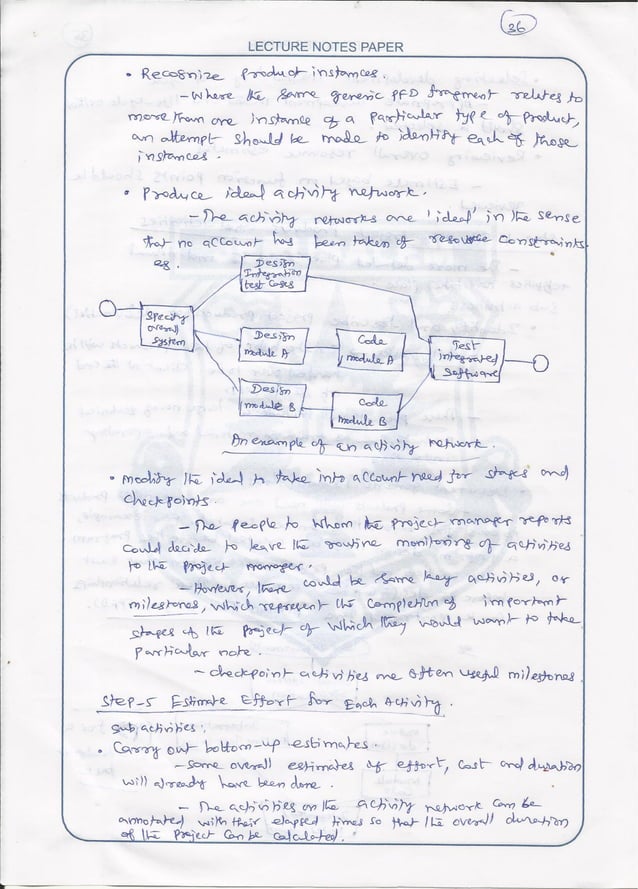 36
LECTURE NOTES PAPER
• Recognize product instances.
– Where the same generic PFD fragment relates to
more than one instance of a particular type of product,
an attempt should be made to identify each of those
instances.
• Produce ideal activity network.
– The activity networks are 'ideal' in the sense
that no account has been taken of resource constraints.
eg.
Design
Integration
test cases
Specify
overall
System
Design
module A
Code
module A
Test
integrated
Software
Design
module B
Code
Module B
An example of an activity network.
• modify the ideal to take into account need for stages and
checkpoints.
– The people to whom the project manager reports
could decide to leave the routine monitoring of activities
to the project manager.
– However, there could be some key activities, or
milestones, which represent the completion of important
stages of the project of which they would want to take
particular note.
– checkpoint activities are often useful milestones.
Step-5 Estimate Effort for Each Activity.
Subactivities:
• Carry out bottom-up estimates.
– some overall estimates of effort, cost and duration
will already have been done.
– The activities on the activity network can be
annotated with their elapsed times so that the overall duration
of the project can be calculated.